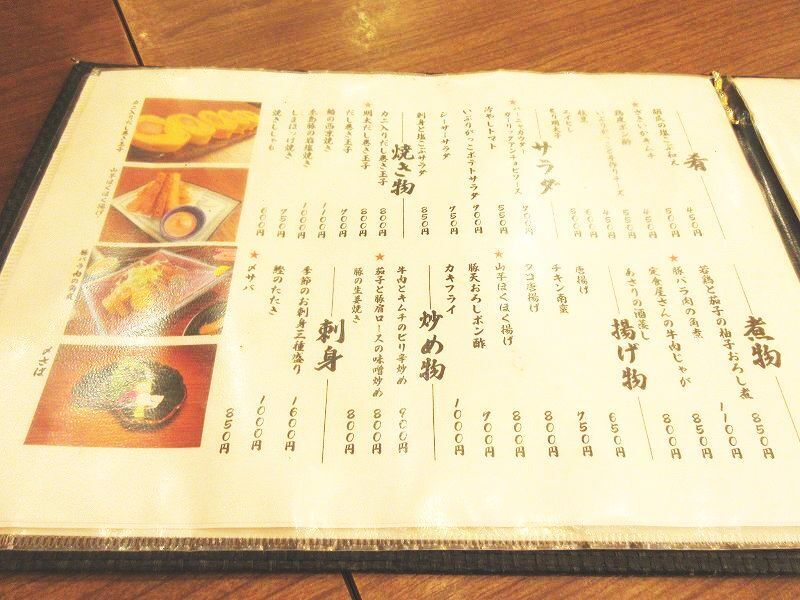 肴
胡瓜の塩こぶ和え 450円
★ささいかキムチ 500円
鶏皮ポン酢 450円
★
いぶりがっこ
枝豆
エイヒレ
炙り明太子
サラダ
バーニャカウダー
ガーリックアンチョビソース 900円
冷やしトマト 550円
いぶりがっこポテトサラダ 700円
シーザーサラダ 750円
刺身と塩こぶサラダ 850円
焼き物
カニ入りだし巻き玉子 800円
★明太だし巻き玉子 800円
だし巻き玉子 700円
鮭の西京焼き 1100円
焼き 1000円
しまほっけ焼き 750円
焼きししゃも 600円
煮物
若鶏と茄子の柚子おろし煮 850円
豚バラ肉の角煮 1100円
★定食屋さんの牛肉じゃが 850円
あさりの酒蒸し 800円
揚げ物
唐揚げ 650円
チキン南蛮 750円
タコ唐揚げ 800円
★山芋ほくほく揚げ 800円
豚天おろしポン酢 900円
カキフライ 1000円
炒め物
牛肉とキムチのピリ辛炒め 900円
★茄子と豚肩ロースの味噌炒め 800円
豚の生姜焼き 850円
刺身
季節のお刺身三種盛り 1600円
鰹のたたき 1000円
★〆サバ 850円
カニ入りだし巻き玉子
山芋ほくほく揚げ
〆サバ